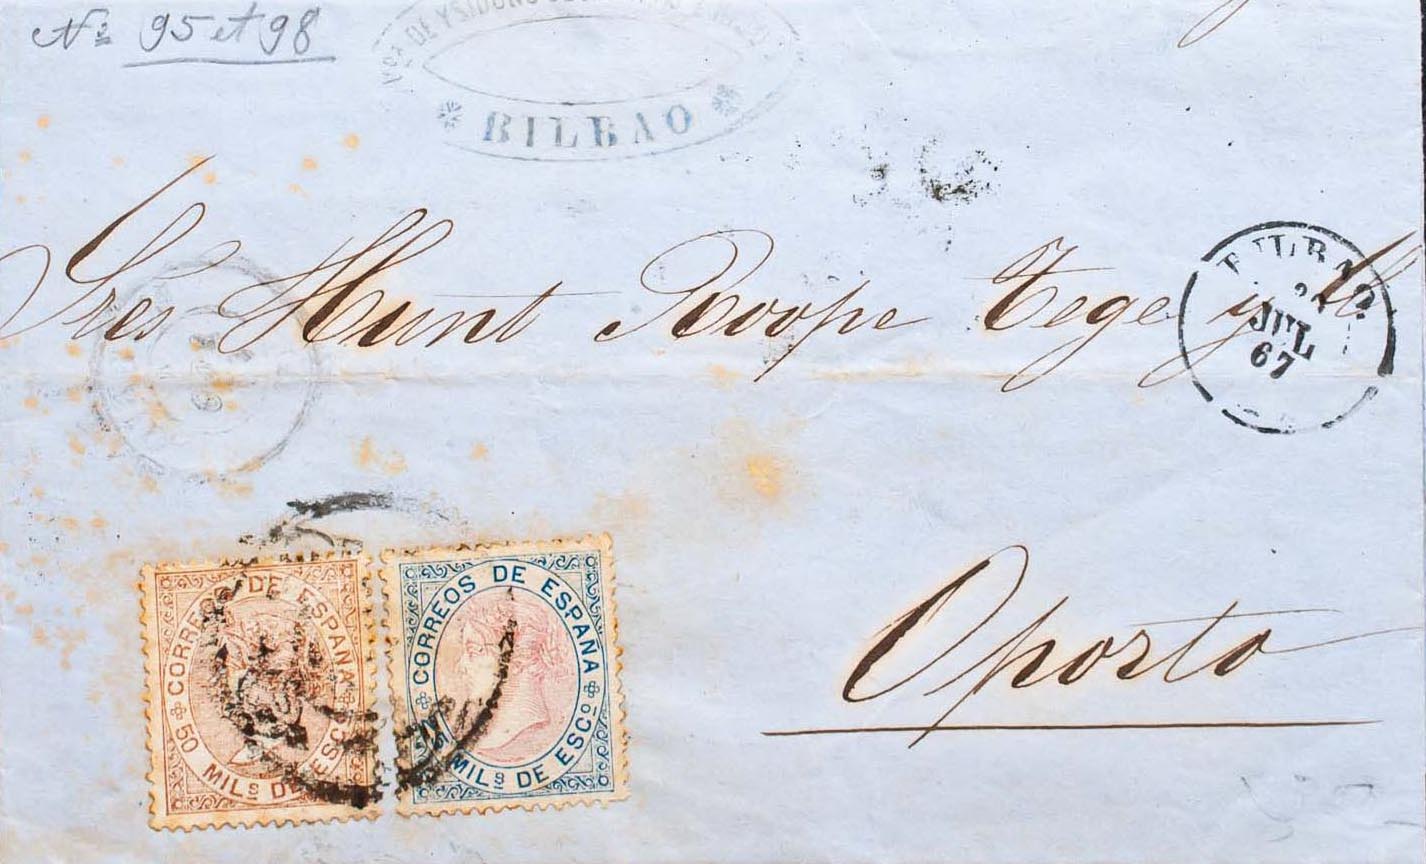 Nº 95 et 98
DE YSIDORO
BILBAO
Sres Hunt Roope Tege y Cº
BILBAO
JUL
67
Oporto
CORREOS DE ESPAÑA
50 MILS DE ESCO
CORREOS DE ESPAÑA
MILS DE ESCO